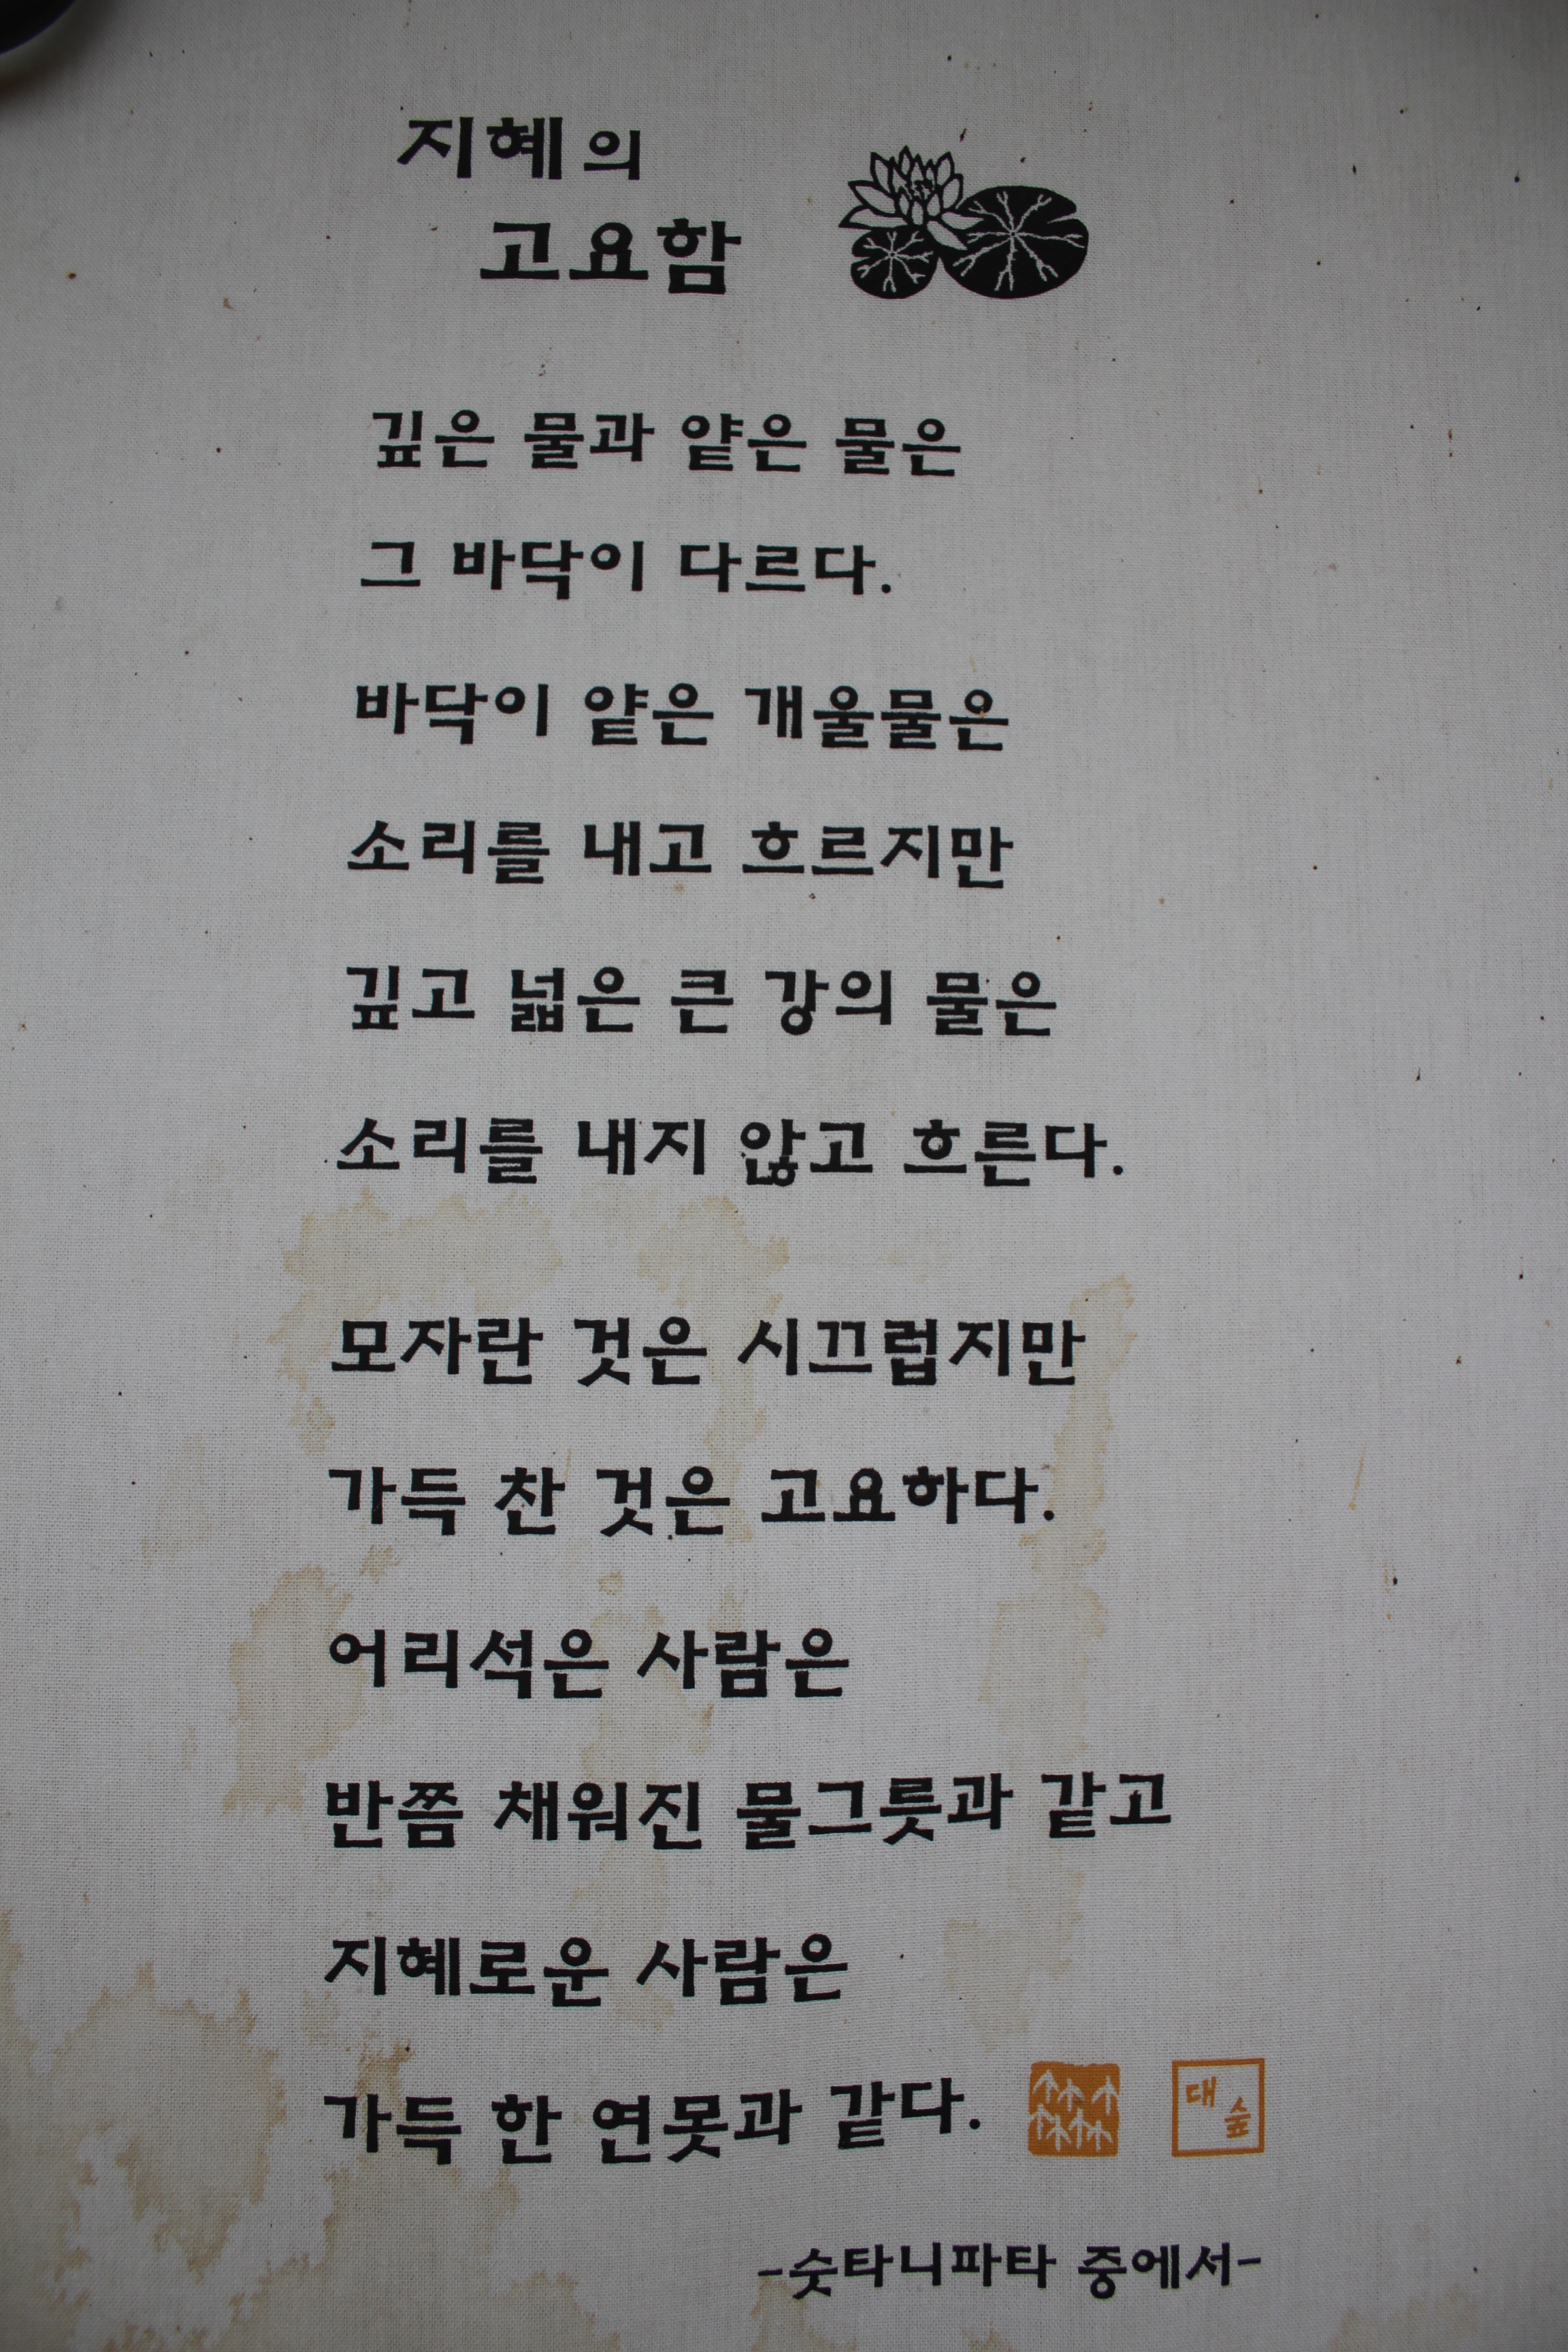 지혜의
고요함
깊은 물과 얕은 물은
그 바닥이 다르다.
바닥이 얕은 개울물은
소리를 내고 흐르지만
깊고 넓은 큰 강의 물은
소리를 내지 않고 흐른다.
모자란 것은 시끄럽지만
가득 찬 것은 고요하다.
어리석은 사람은
반쯤 채워진 물그릇과 같고
지혜로운 사람은
가득 한 연못과 같다.
대숲
-숫타니파타 중에서-